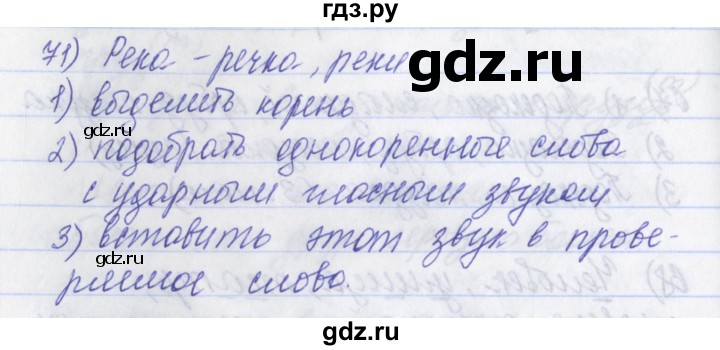 гдз.ру
71) Река - речка, реки
1) выделить корень
gdz.ru
gdz.ru
2) подобрать однокоренные слова
с ударным гласным звуком
gdz.ru
3) вставить этот звук в прове-
ряемое слово.
gdz.ru
gdz.ru